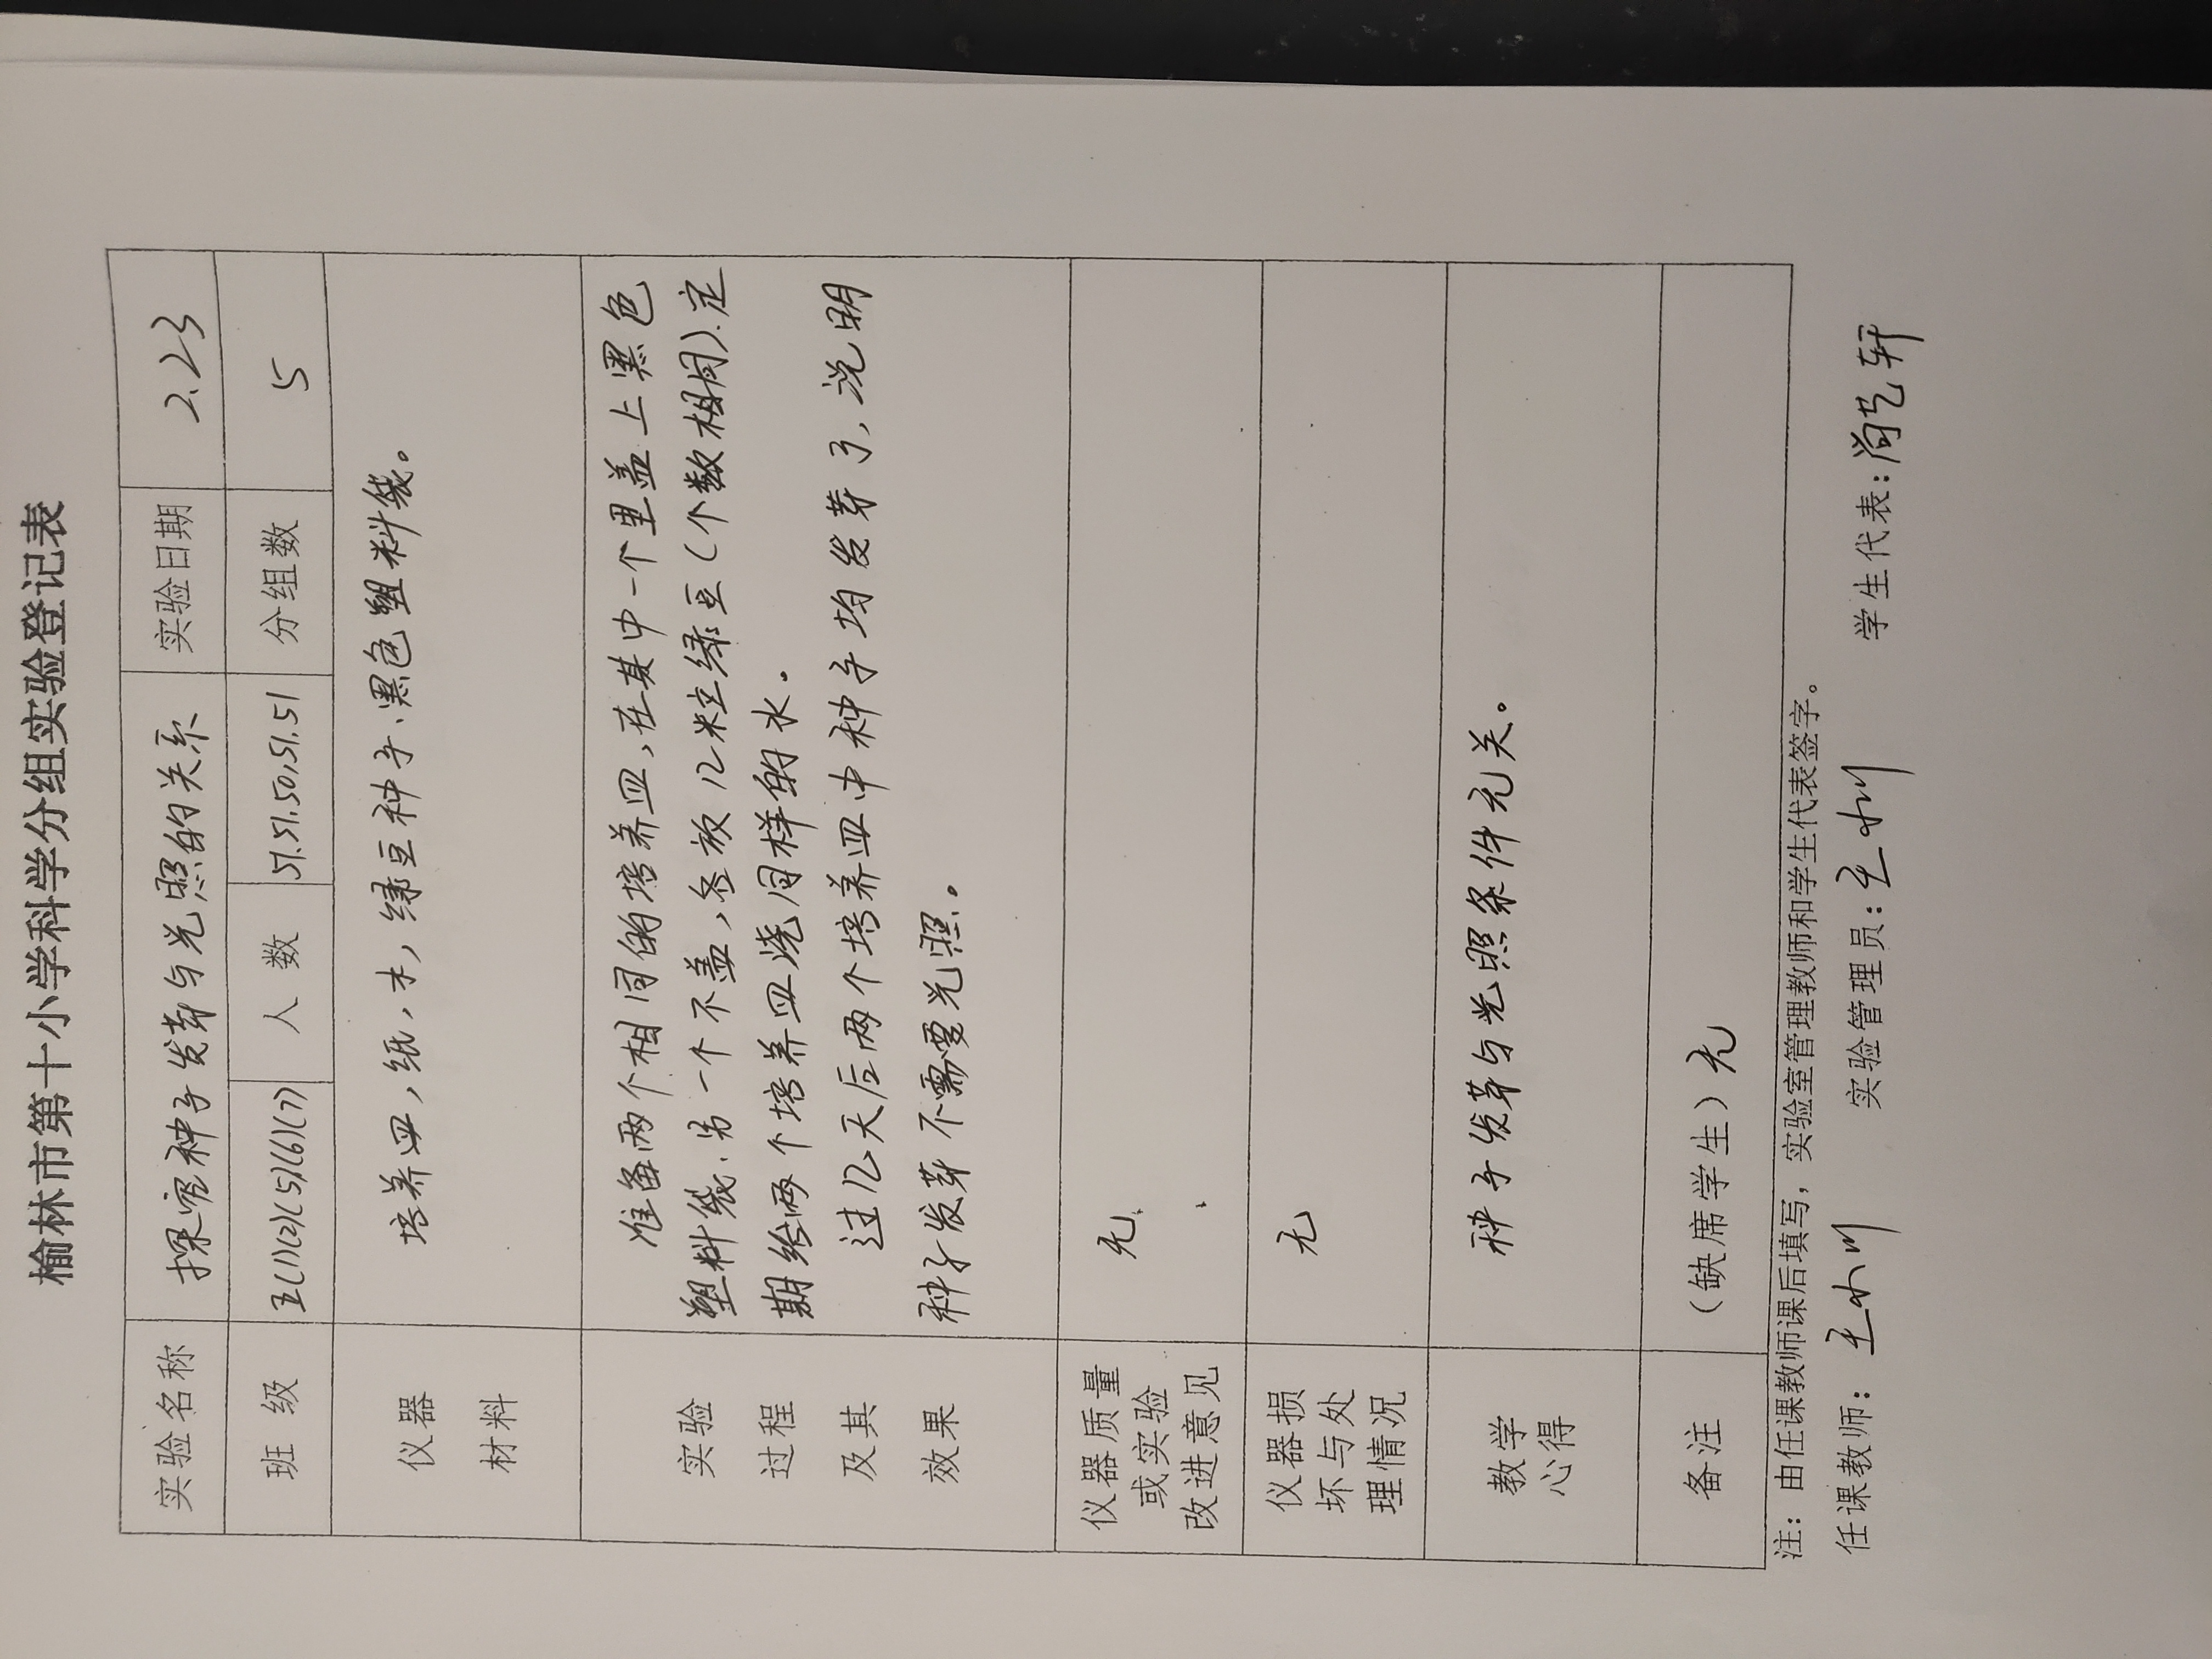 榆林市第十小学科学分组实验登记表
实验名称 探究种子发芽与光照的关系 实验日期 2.23
班级 五(1)(2)(5)(6)(7) 人数 51.51.50.51.51 分组数 5
仪器 培养皿,纸,水,绿豆种子.黑色塑料袋。
材料
准备两个相同的培养皿,在其中一个里盖上黑色
实验 塑料袋.另一个不盖,各放12粒绿豆(个数相同).定
过程 期给两个培养皿浇同样的水.
及其 过12天后两个培养皿中种子均发芽了,说明
效果 种子发芽不需要光照.
仪器质量
或实验 无
改进意见
仪器损
坏与处 无
理情况
教学 种子发芽与光照条件无关。
心得
备注 (缺席学生)无
注:由任课教师课后填写,实验室管理教师和学生代表签字。
任课教师: 实验管理员: 学生代表: